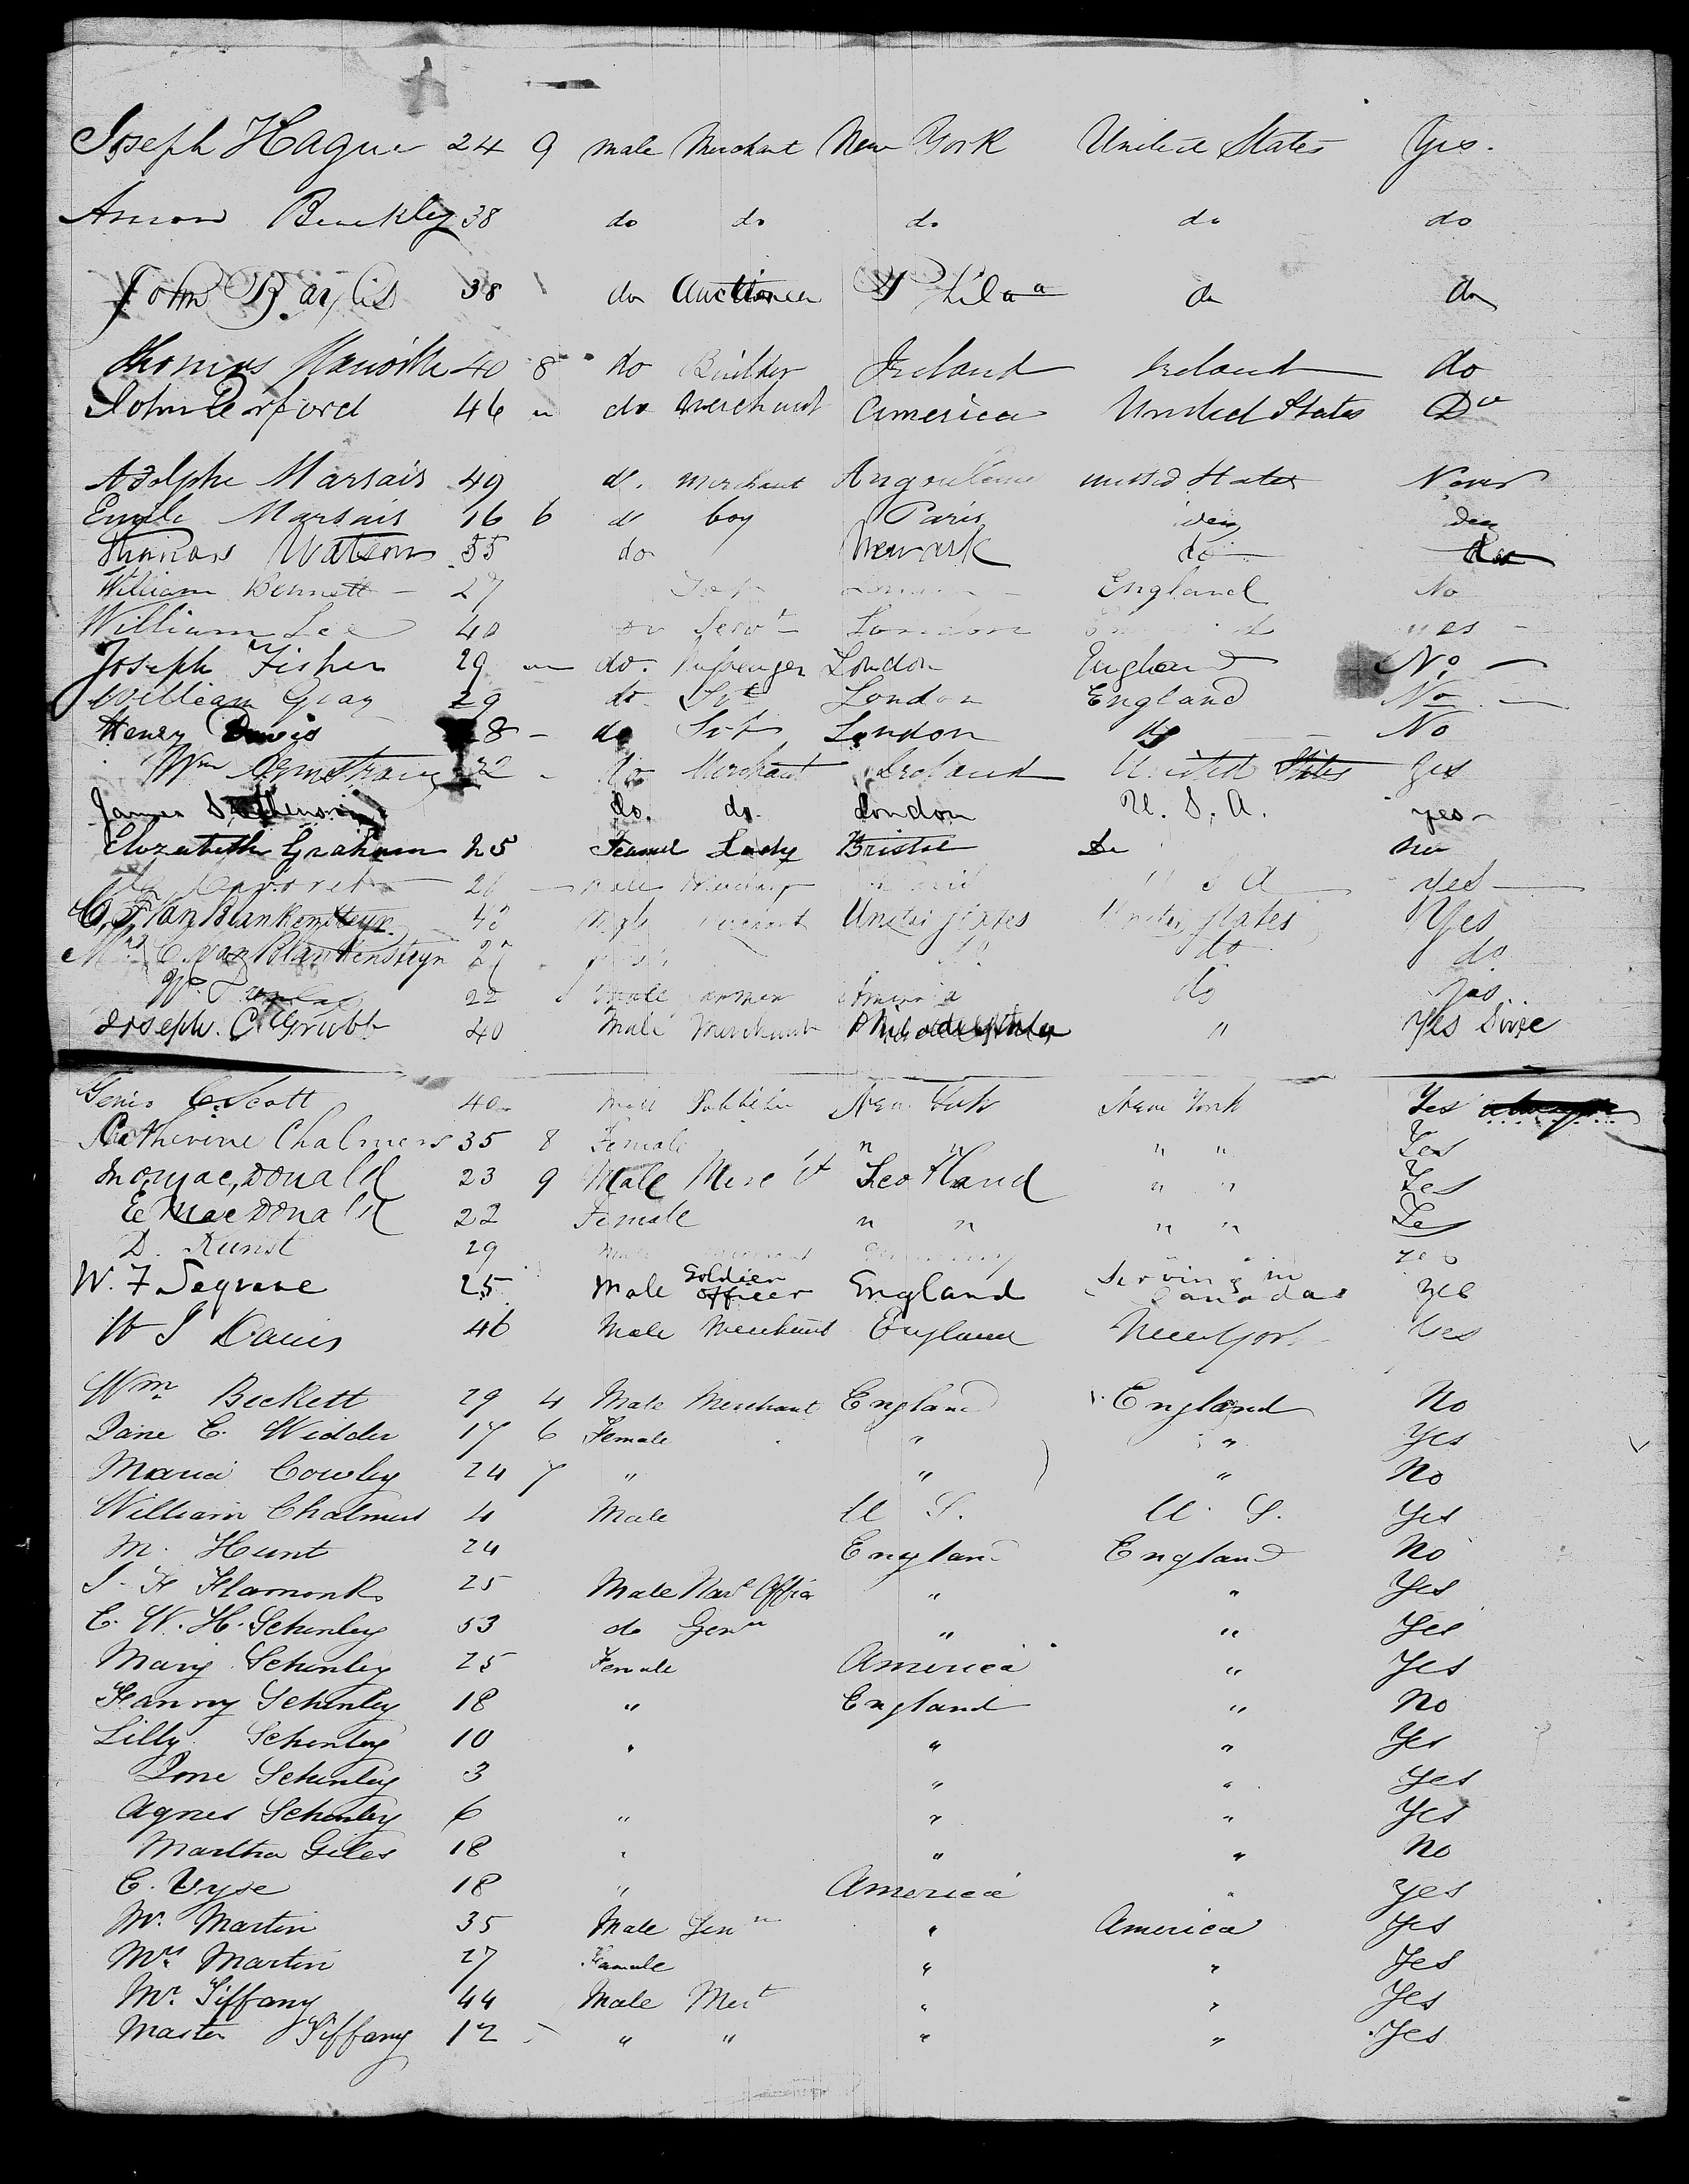 Joseph Hague 24 9 male Merchant New York United States Yes.
Anson Binckley 38 do do do do do
John Baylis 38 do Auctioneer Phila do do
Thomas 40 8 do Builder Ireland Ireland do
John Perford 46 do Merchant America United States Do
Adolphe Marsais 49 d. merchant Angouleme united States Never
Emile Marsais 16 6 d boy Paris idem idem
Thomas Watson 55 do Newark do
William Bennett 27 England No
William Lee 40 do Servt London yes
Joseph Fisher 29 do. Passenger London England No
William Gray 29 do Svt London England No
Henry Davis 28 do Svt London do No
Wm Armstrong 32 do Merchant Ireland United States Yes
James Stephenson do. do. London U. S. A. yes
Elizabeth Graham 25 Female Lady Bristol Do no
male U S A yes
C. F. Van Blankensteyn 42 Male Merchant United States United States Yes
Mrs C. van Blankensteyn 27 do do do
W. 22 Male America do yes
Joseph. C. Grubb 40 Male Merchant Philadelphia " Yes Since
Genio C. Scott 40 Male Publisher New York New York Yes
Catherine Chalmers 35 8 Female " " " " Yes
MacDonald 23 9 Male Merct Scotland " " Yes
E MacDonald 22 Female " " " " Yes
D. Kunst 29 Male Germany " " yes
W. F Segrave 25 Male Soldier officer England Serving in Canada yes
W J Davis 46 Male Merchant England New York Yes
Wm. Beckett 29 4 Male Merchant England England No
Jane C. Widder 17 6 Female " " Yes
Maria Cowley 24 7 " " " No
William Chalmers 4 Male U S. U. S. Yes
M. Hunt 24 England England No
J. H Hamonk 25 Male Navl Officer " " Yes
E. W. H. Schenley 53 do Genn " " Yes
Mary Schenley 25 Female America " Yes
Fanny Schenley 18 " England " No
Lilly Schenley 10 " " " Yes
Jane Schenley 3 " " Yes
Agnes Schenley 6 " " " Yes
Martha Giles 18 " " " No
C. Vyse 18 " America " yes
Mr. Martin 35 Male Genn " America Yes
Mrs Martin 27 Female " " Yes
Mr. Tiffany 44 Male Mert " " Yes
Master Tiffany 12 " " " " Yes